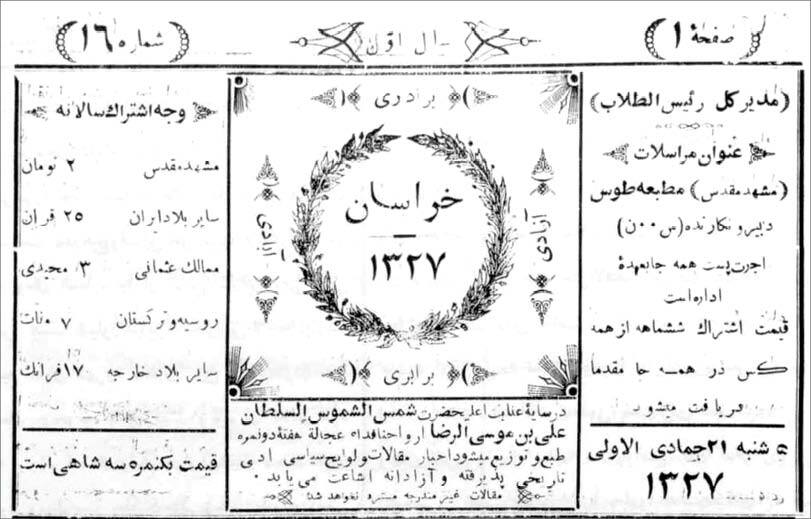 صفحهٔ ۱
سال اوّل
شماره ۱۶
(مدیر کل رئیس الطلاب)
عنوان مراسلات
(مشهد مقدس) مطبعه طوس
دبیر و نکارنده (س ۰۰ ن)
اجرت پست همه جا بعهدهٔ
اداره است
قیمت اشتراك ششماهه از همه
کس در همه جا مقدما
دریافت میشود
۵ شنبه ۲۱ جمادی الاولی
۱۳۲۷
برادری
آزادی
خراسان
۱۳۲۷
آزادی
برابری
در سایهٔ عنایت اعلیحضرت شمس الشموس السلطان
علی بن موسی الرضا ارواحنافداه عجالة هفتهٔ دو نمره
طبع و توزیع میشود اخبار مقالات و لوایح سیاسی ادبی
تاریخی پذیرفته و آزادانه اشاعت می یابد ۰
مقالات غیر مندرجه مسترد نخواهد شد
وجه اشتراك سالانه
مشهد مقدس ۲ تومان
سایر بلاد ایران ۲۵ قران
ممالك عثمانی ۳ مجیدی
روسیه و ترکستان ۷ منات
سایر بلاد خارجه ۱۷ فرانك
قیمت یکنمره سه شاهی است